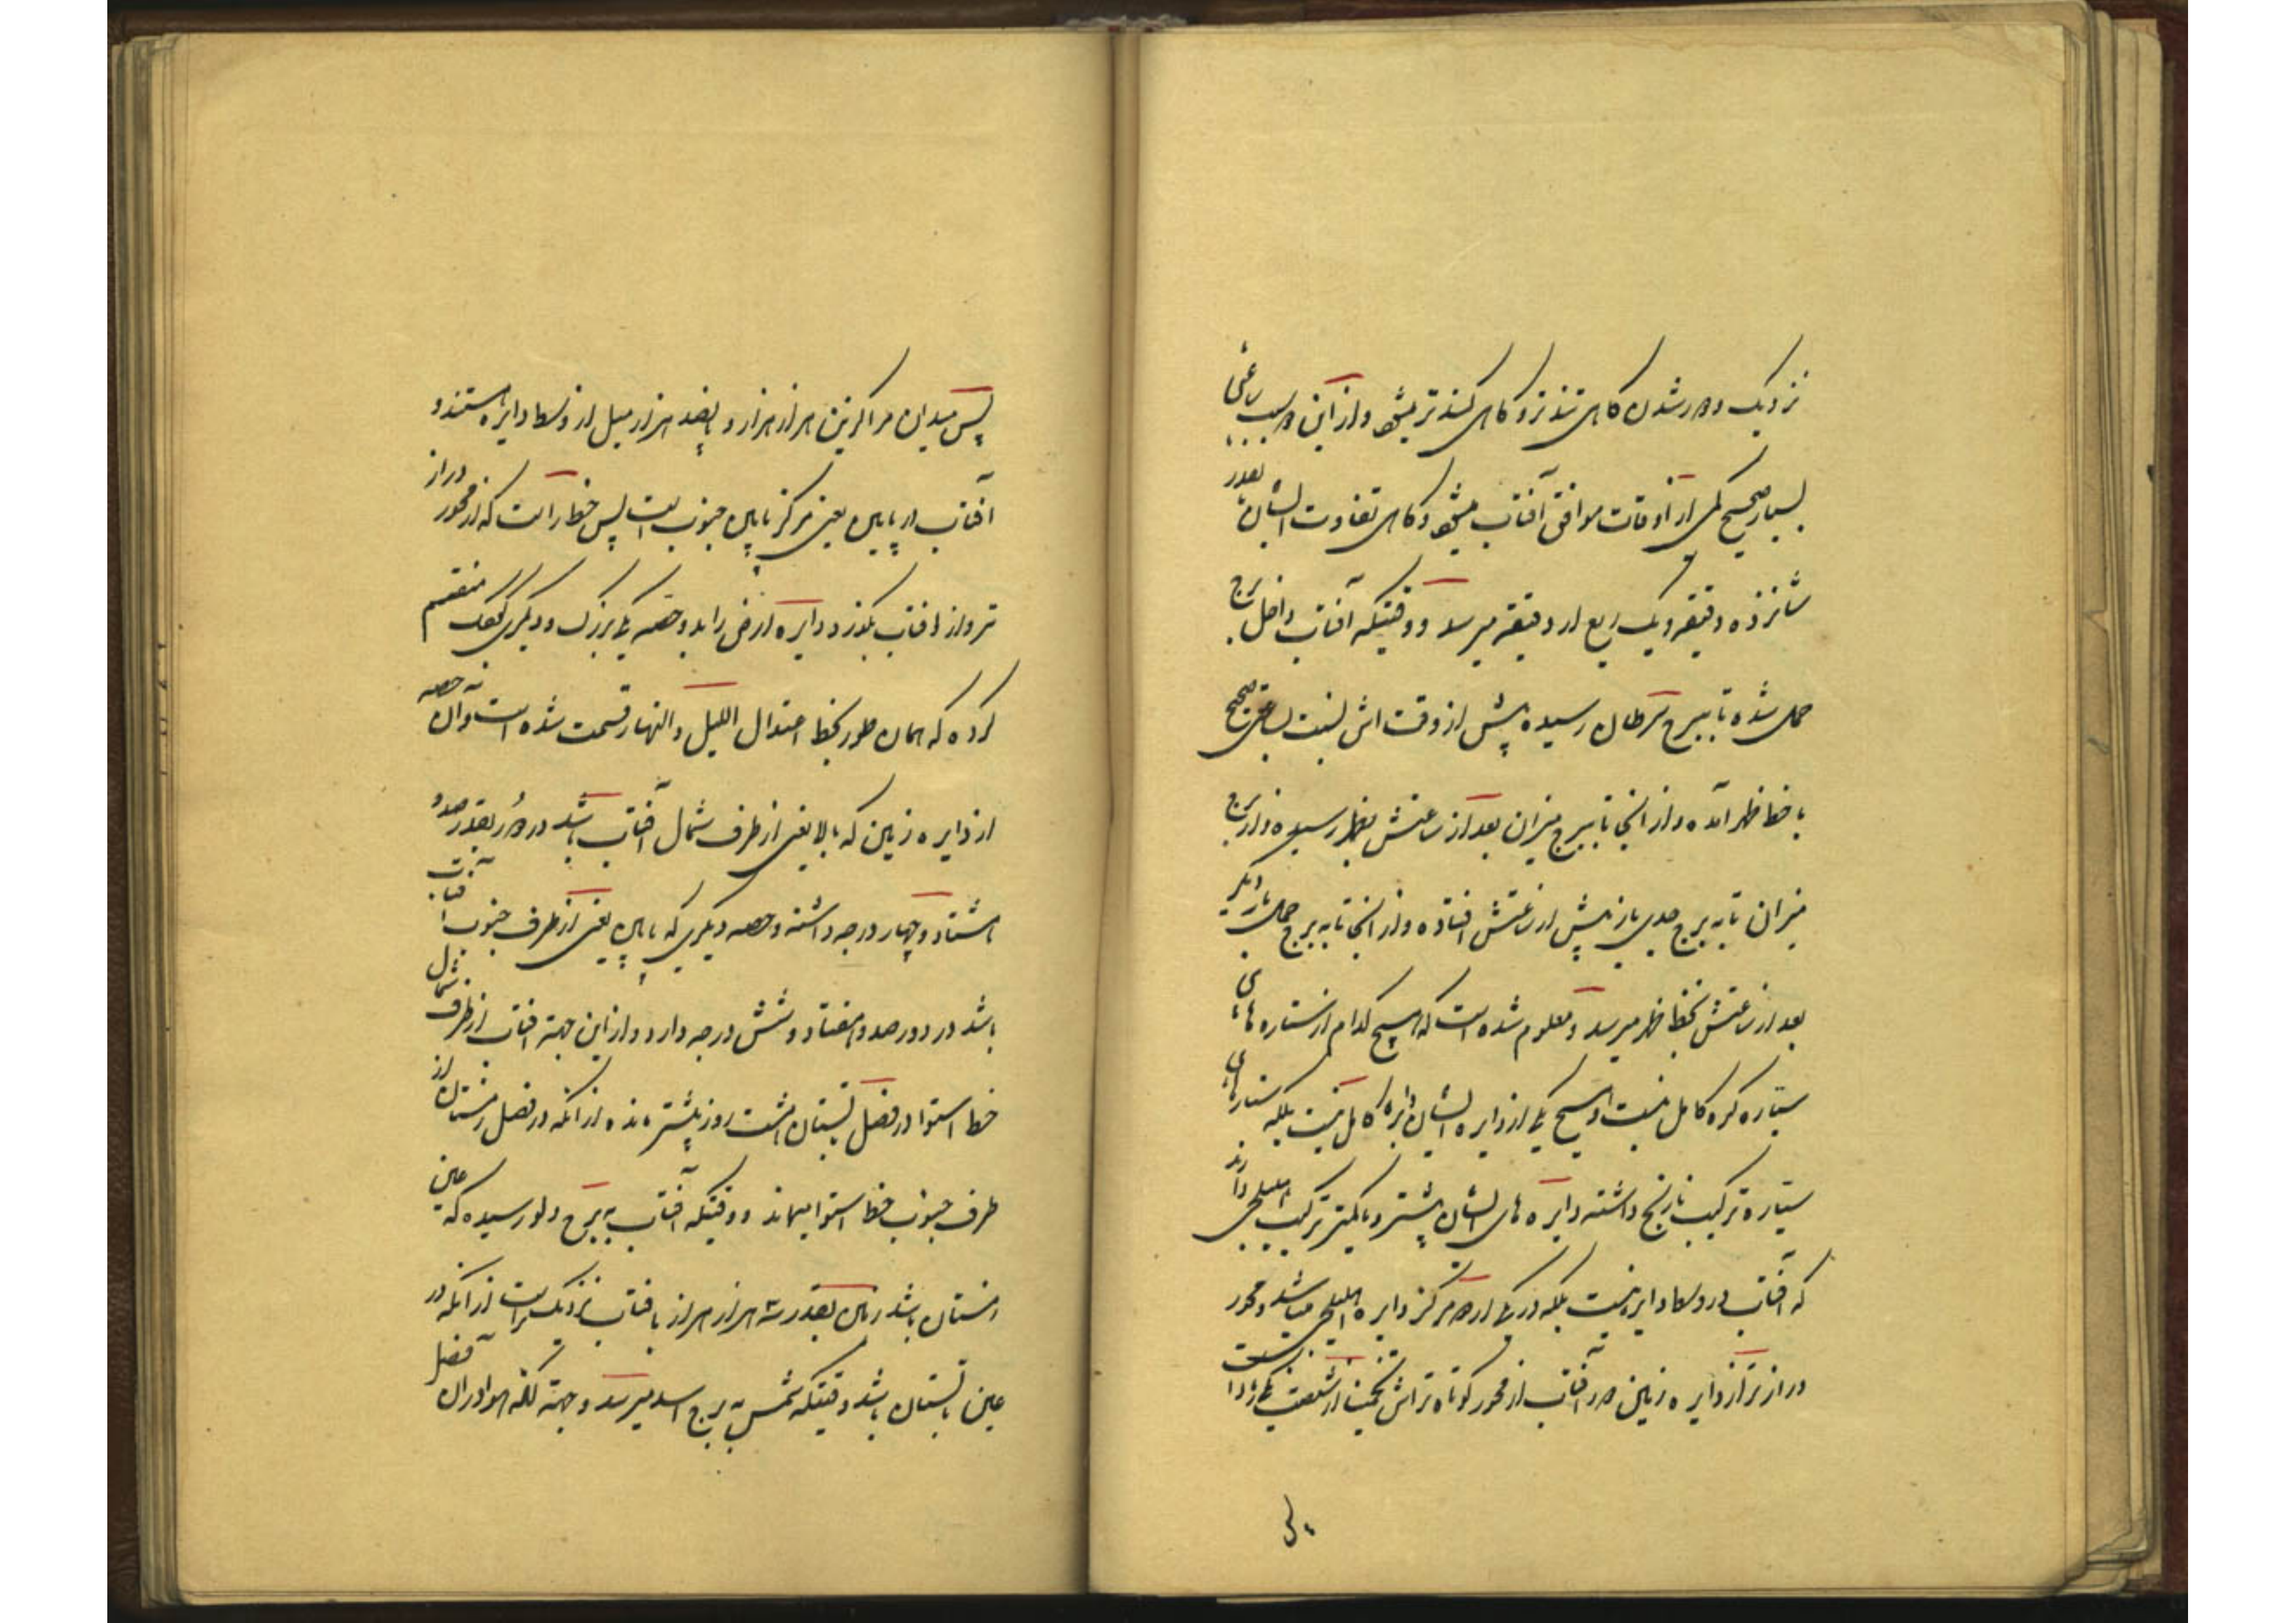 نزدیک و دور شدن گاهی تندتر و گاهی کندتر میشود و از این دو سبب ساعتی
بسیار صحیح کمی از اوقات موافق آفتاب میشود و گاهی تفاوت ایشان بقدر
شانزده دقیقه و یک ربع از دقیقه میرسد و وقتیکه آفتاب داخل برج
حمل شده تا ببرج سرطان رسیده پیش از وقت اش بنسبت بساعتی صحیح
با خط ظهر آمده و از آنجا تا ببرج میزان بعد از ساعتش بظهر رسیده و از برج
میزان تا به برج جدی باز پیش از ساعتش افتاده و از آنجا تا به برج حمل بار دیگر
بعد از ساعتش بخط ظهر میرسد و معلوم شده است که هیچ کدام از ستاره های
سیاره کره کامل نیست و هیچ یکی از دایره ایشان دایره کامل نیست بلکه ستارهای
سیاره ترکیب نارنج داشته دایره های ایشان بیشتر و یا کمتر ترکیب اهلیلجی دارند
که آفتاب در وسط دایره نیست بلکه در یکی از دو مرکز دایره اهلیلجی میباشد و محور
درازتر از دایره زمین دور آفتاب از محور کوتاه تر اش
پس میدان مراکزین هزار هزار و پانصد هزار میل از وسط دایره هستند و
آفتاب در پایین یعنی مرکز پایین جنوب است پس خط راست که از محور دراز
تر و از آفتاب بگذرد دایره ارض را بدو حصه یکی بزرگ و دیگری کوچک منقسم
کرده که همان طور بخط اعتدال اللیل و النهار قسمت شده است و آن حصه
از دایره زمین که بالا یعنی از طرف شمال آفتاب باشد در دور بقدر صد و
هشتاد و چهار درجه داشته و حصه دیگری که پایین یعنی از طرف جنوب آفتاب
باشد در دور صد و هفتاد و شش درجه دارد و از این جهة آفتاب از طرف شمال
خط استوا در فصل تابستان هشت روز بیشتر مانده از آنکه در فصل زمستان از
طرف جنوب خط استوا میماند و وقتیکه آفتاب به برج دلو رسیده که عین
زمستان باشد زمین بقدر سه هزار هزار بآفتاب نزدیکتر است از آنکه در
عین تابستان باشد وقتیکه شمس به برج اسد میرسد و جهة آنکه هوا در آن فصل